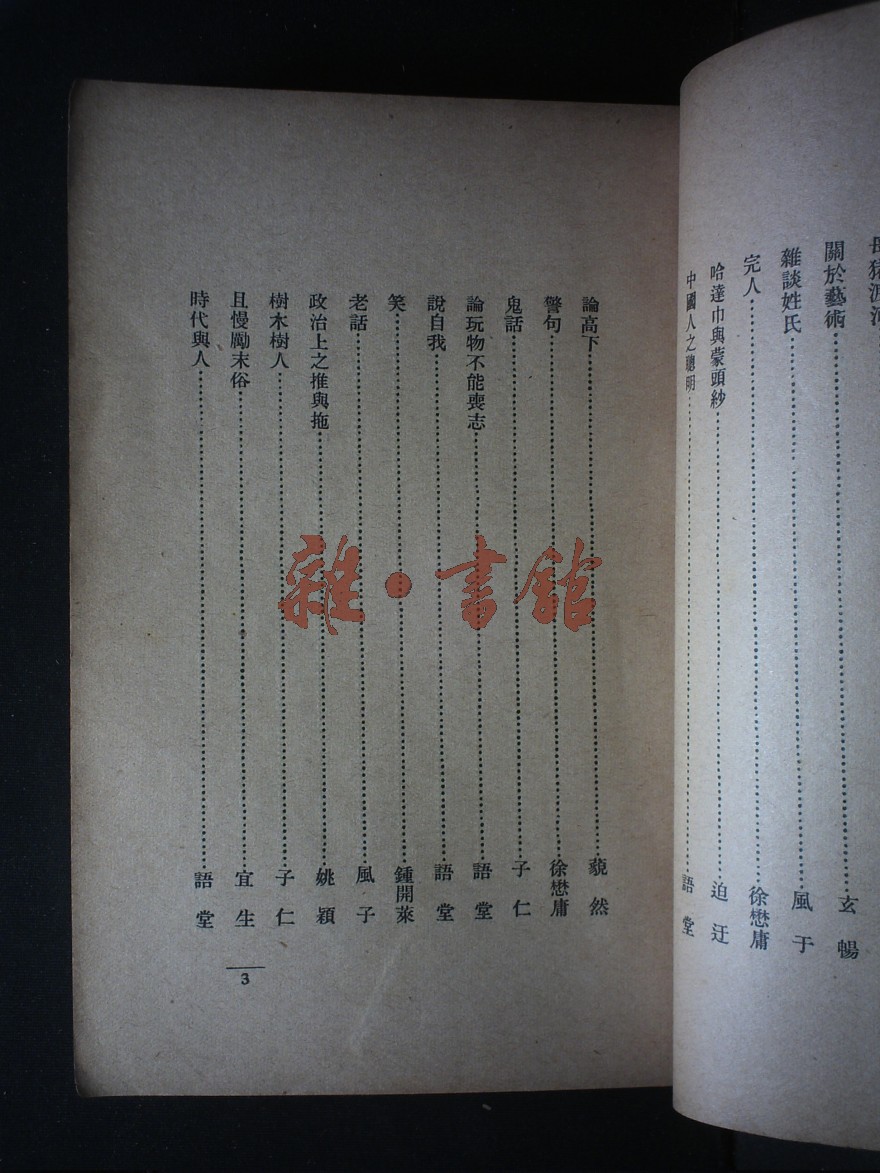 關於藝術⋯⋯玄暢
雜談姓氏⋯⋯風于
完人⋯⋯徐懋庸
哈達巾與蒙頭紗⋯⋯迫迂
中國人之聰明⋯⋯語堂
論高下⋯⋯藐然
警句⋯⋯徐懋庸
鬼話⋯⋯子仁
論玩物不能喪志⋯⋯語堂
說自我⋯⋯語堂
笑⋯⋯鍾開萊
老話⋯⋯風子
政治上之推與拖⋯⋯姚穎
樹木樹人⋯⋯子仁
且慢勵末俗⋯⋯宜生
時代與人⋯⋯語堂
3
雜·書館